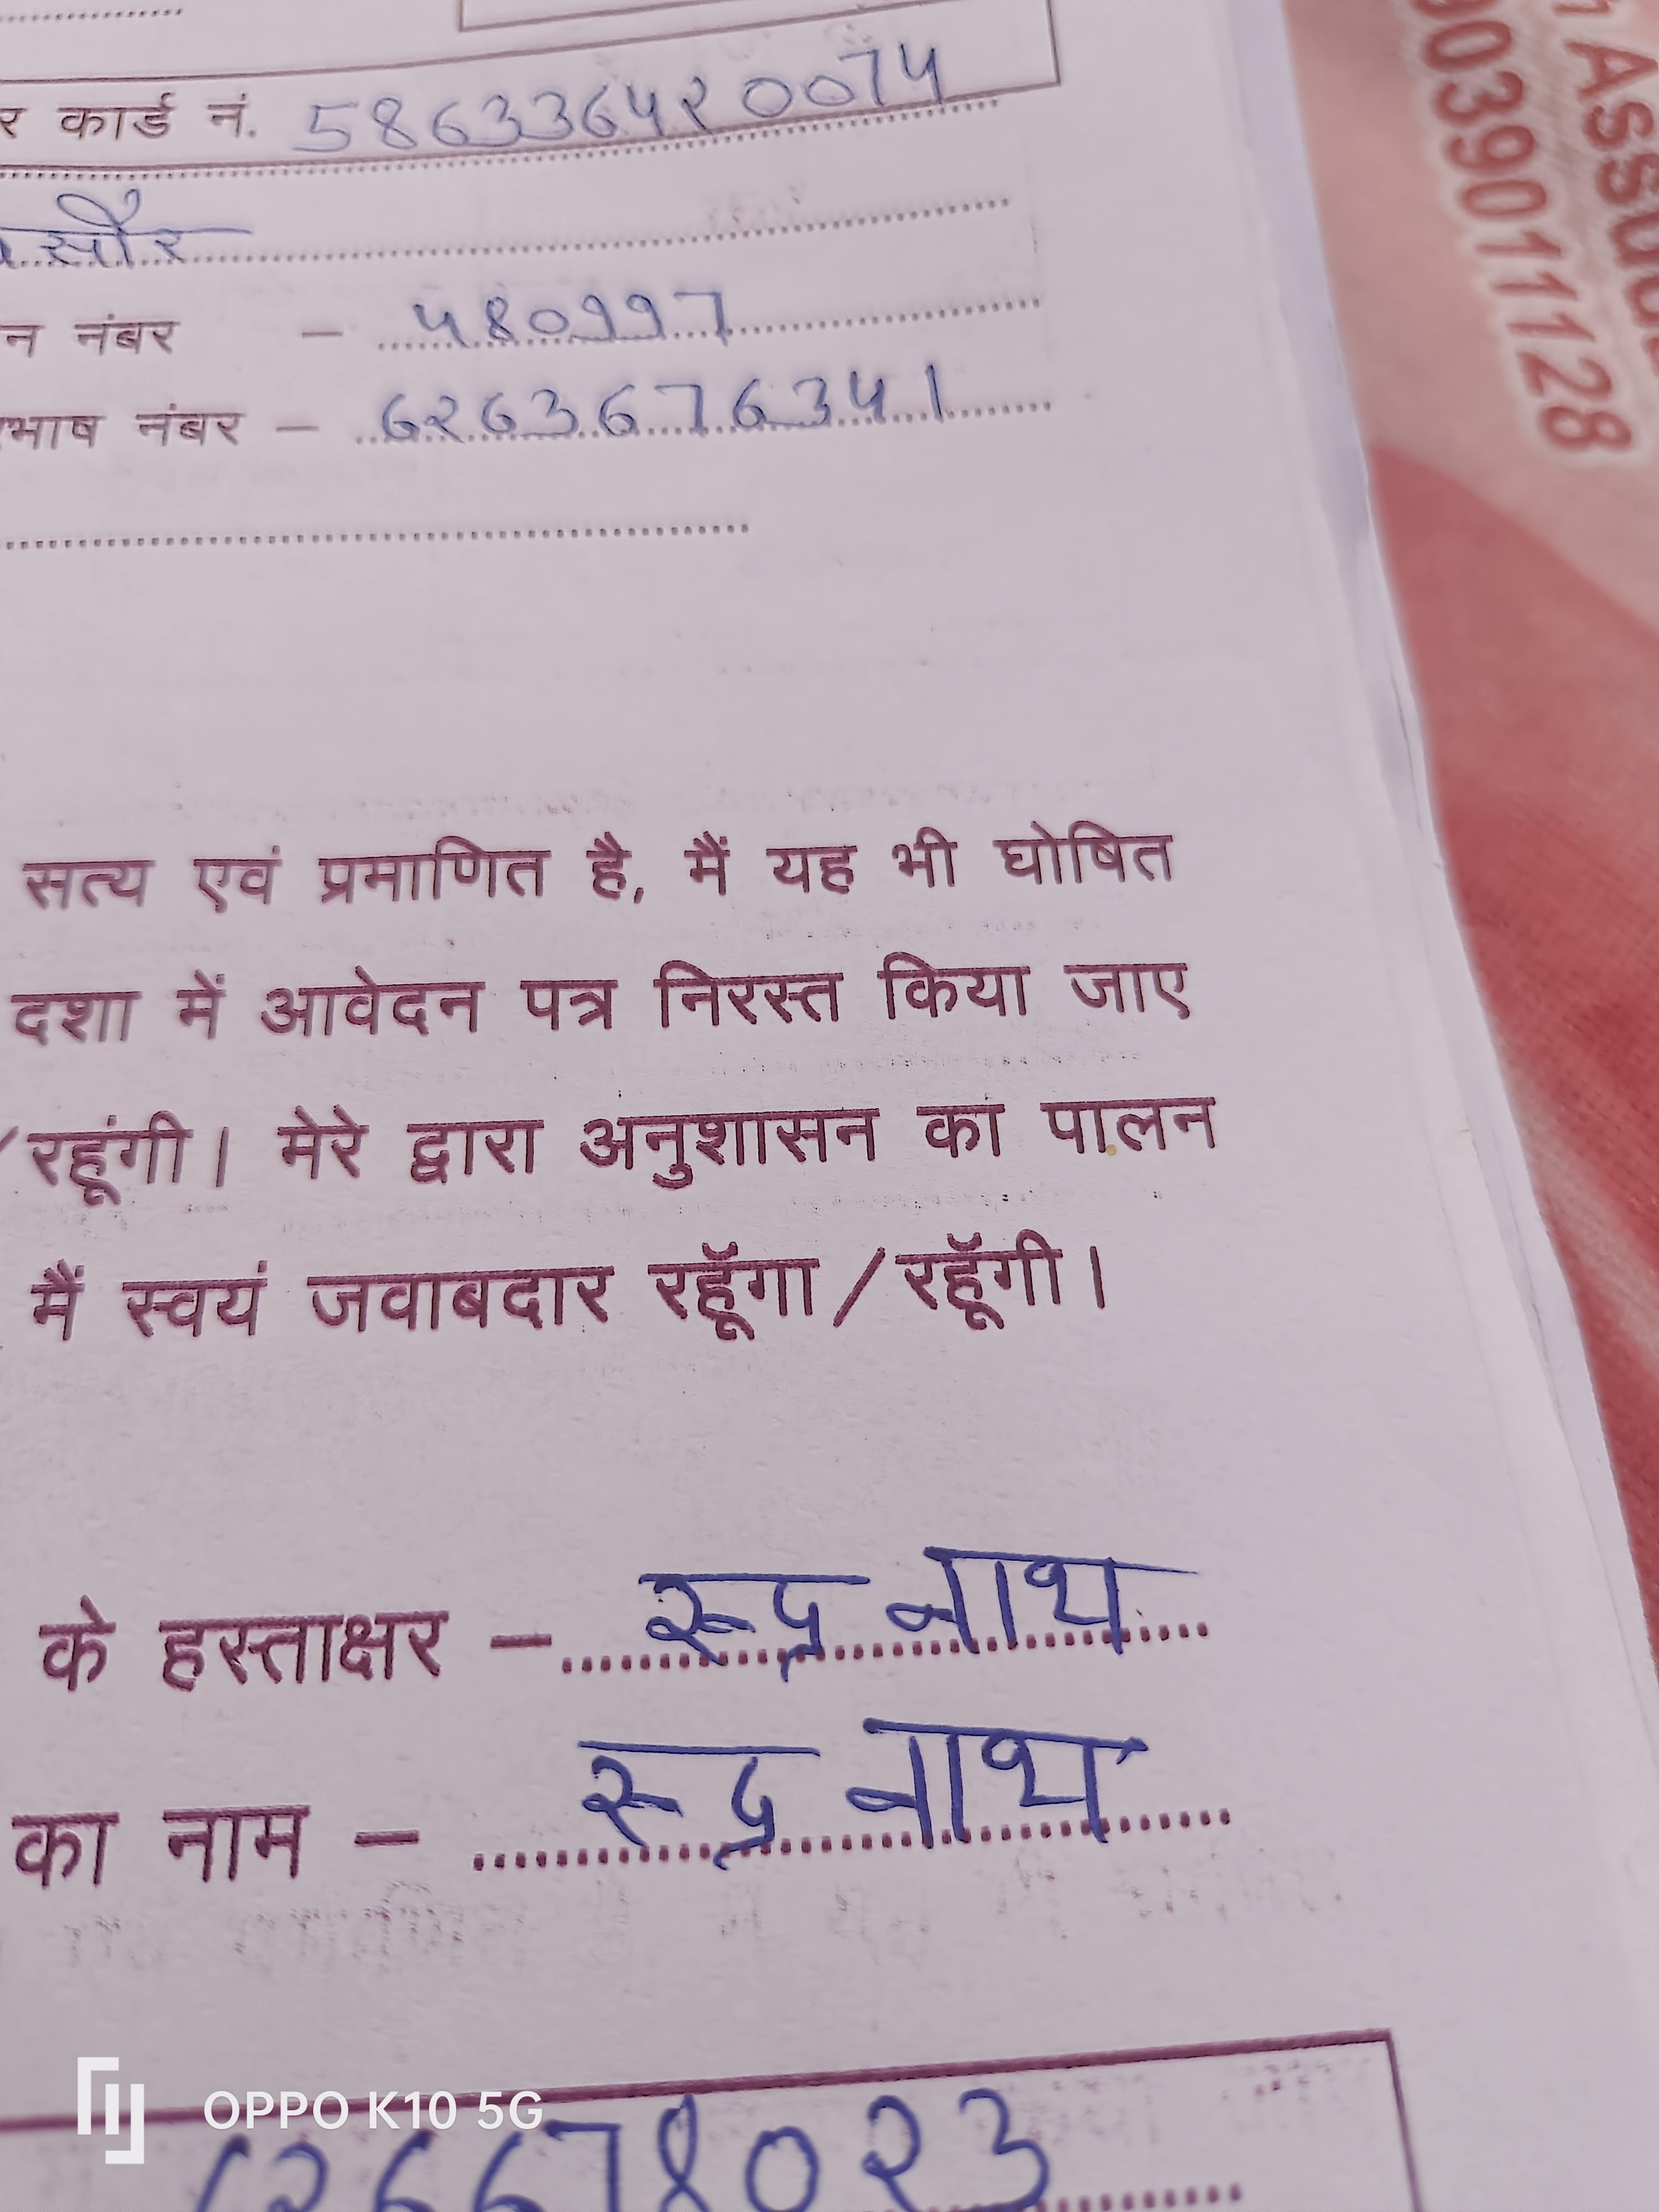 र कार्ड नं. 586336420074
सौर
न नंबर – 480997
भाष नंबर – 6263676341
सत्य एवं प्रमाणित है, मैं यह भी घोषित
दशा में आवेदन पत्र निरस्त किया जाए
/रहूंगी। मेरे द्वारा अनुशासन का पालन
मैं स्वयं जवाबदार रहूँगा/रहूँगी।
के हस्ताक्षर – रूद्र नाथ
का नाम – रूद्र नाथ
26678023
OPPO K10 5G
9039011128